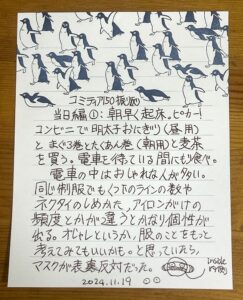 コミティア150振り返り
当日編①：朝早く起床。ピカー！
コンビニで明太子おにぎり(昼用)
とまぐろ巻とたくあん巻(朝用)と麦茶
を買う。電車を待っている間にもう食べ。
電車の中はおしゃれな人が多い。
同じ制服でもくつ下のラインの数や
ネクタイのしめかた、アイロンがけの
頻度とかが違うとかなり個性が
出る。オシャレというか、服のことをもっと
考えてみてもいいかも。と思っていたら、
マスクが表裏反対だった。
2024.11.19